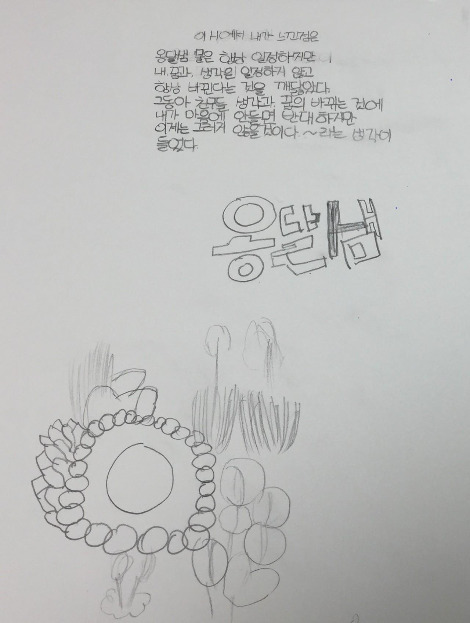 이 시에서 내가 느낀점은
옹달샘 물은 항상 일정하지만
내 꿈과 생각은 일정하지 않고
항상 바뀐다는 것을 깨달았다.
그동안 친구들 생각과 꿈의 바뀌는 것에
내가 마음에 안들면 반대 하지만
이제는 그러지 않을것이다 ~ 라는 생각이
들었다
옹달샘